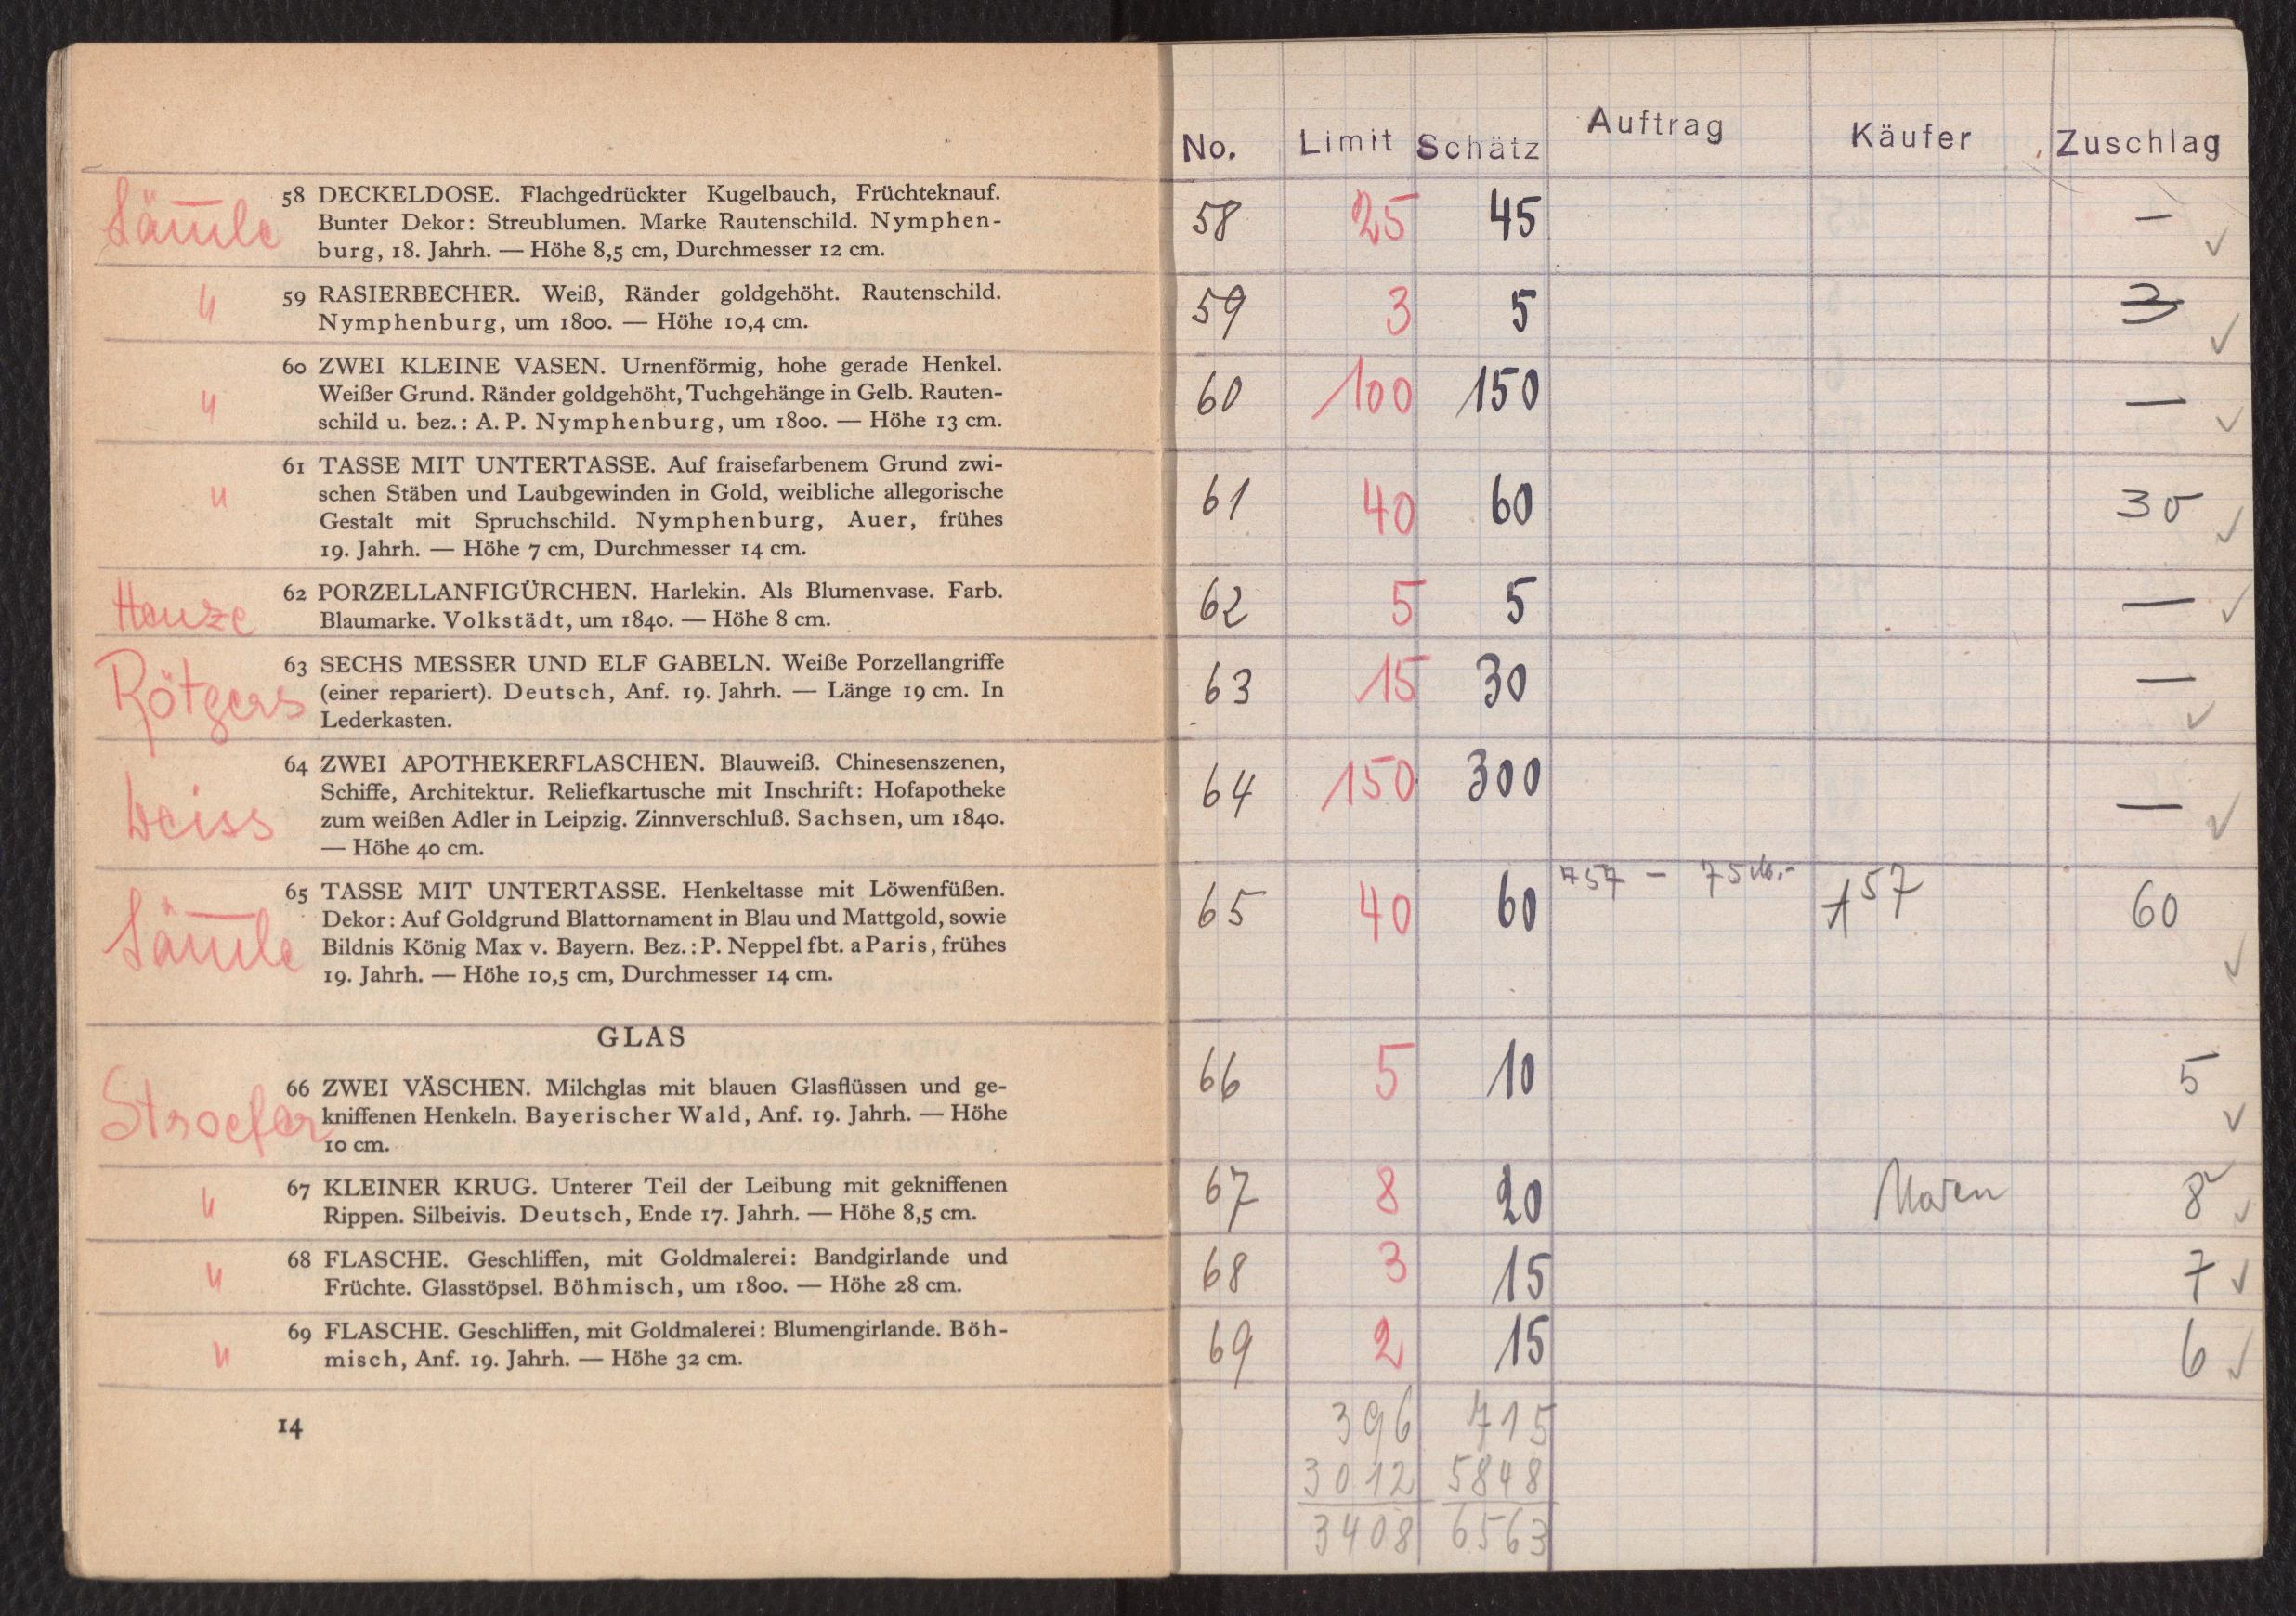 58 DECKELDOSE. Flachgedrückter Kugelbauch, Früchteknauf.
Bunter Dekor: Streublumen. Marke Rautenschild. Nymphen-
burg, 18. Jahrh. — Höhe 8,5 cm, Durchmesser 12 cm.
" 59 RASIERBECHER. Weiß, Ränder goldgehöht. Rautenschild.
Nymphenburg, um 1800. — Höhe 10,4 cm.
" 60 ZWEI KLEINE VASEN. Urnenförmig, hohe gerade Henkel.
Weißer Grund. Ränder goldgehöht, Tuchgehänge in Gelb. Rauten-
schild u. bez.: A. P. Nymphenburg, um 1800. — Höhe 13 cm.
" 61 TASSE MIT UNTERTASSE. Auf fraisefarbenem Grund zwi-
schen Stäben und Laubgewinden in Gold, weibliche allegorische
Gestalt mit Spruchschild. Nymphenburg, Auer, frühes
19. Jahrh. — Höhe 7 cm, Durchmesser 14 cm.
62 PORZELLANFIGÜRCHEN. Harlekin. Als Blumenvase. Farb.
Blaumarke. Volkstädt, um 1840. — Höhe 8 cm.
Rötgers 63 SECHS MESSER UND ELF GABELN. Weiße Porzellangriffe
(einer repariert). Deutsch, Anf. 19. Jahrh. — Länge 19 cm. In
Lederkasten.
Weiss 64 ZWEI APOTHEKERFLASCHEN. Blauweiß. Chinesenszenen,
Schiffe, Architektur. Reliefkartusche mit Inschrift: Hofapotheke
zum weißen Adler in Leipzig. Zinnverschluß. Sachsen, um 1840.
— Höhe 40 cm.
65 TASSE MIT UNTERTASSE. Henkeltasse mit Löwenfüßen.
Dekor: Auf Goldgrund Blattornament in Blau und Mattgold, sowie
Bildnis König Max v. Bayern. Bez.: P. Neppel fbt. a Paris, frühes
19. Jahrh. — Höhe 10,5 cm, Durchmesser 14 cm.
GLAS
Stroefer 66 ZWEI VÄSCHEN. Milchglas mit blauen Glasflüssen und ge-
kniffenen Henkeln. Bayerischer Wald, Anf. 19. Jahrh. — Höhe
10 cm.
" 67 KLEINER KRUG. Unterer Teil der Leibung mit gekniffenen
Rippen. Silbeivis. Deutsch, Ende 17. Jahrh. — Höhe 8,5 cm.
" 68 FLASCHE. Geschliffen, mit Goldmalerei: Bandgirlande und
Früchte. Glasstöpsel. Böhmisch, um 1800. — Höhe 28 cm.
" 69 FLASCHE. Geschliffen, mit Goldmalerei: Blumengirlande. Böh-
misch, Anf. 19. Jahrh. — Höhe 32 cm.
14
No. Limit Schätz Auftrag Käufer Zuschlag
58 25 45 — ✓
59 3 5 3 ✓
60 100 150 — ✓
61 40 60 30 ✓
62 5 5 — ✓
63 15 30 — ✓
64 150 300 — ✓
65 40 60 757 – 75 157 60 ✓
66 5 10 5 ✓
67 8 20 8 ✓
68 3 15 7 ✓
69 2 15 6 ✓
396 715
3012 5848
3408 6563